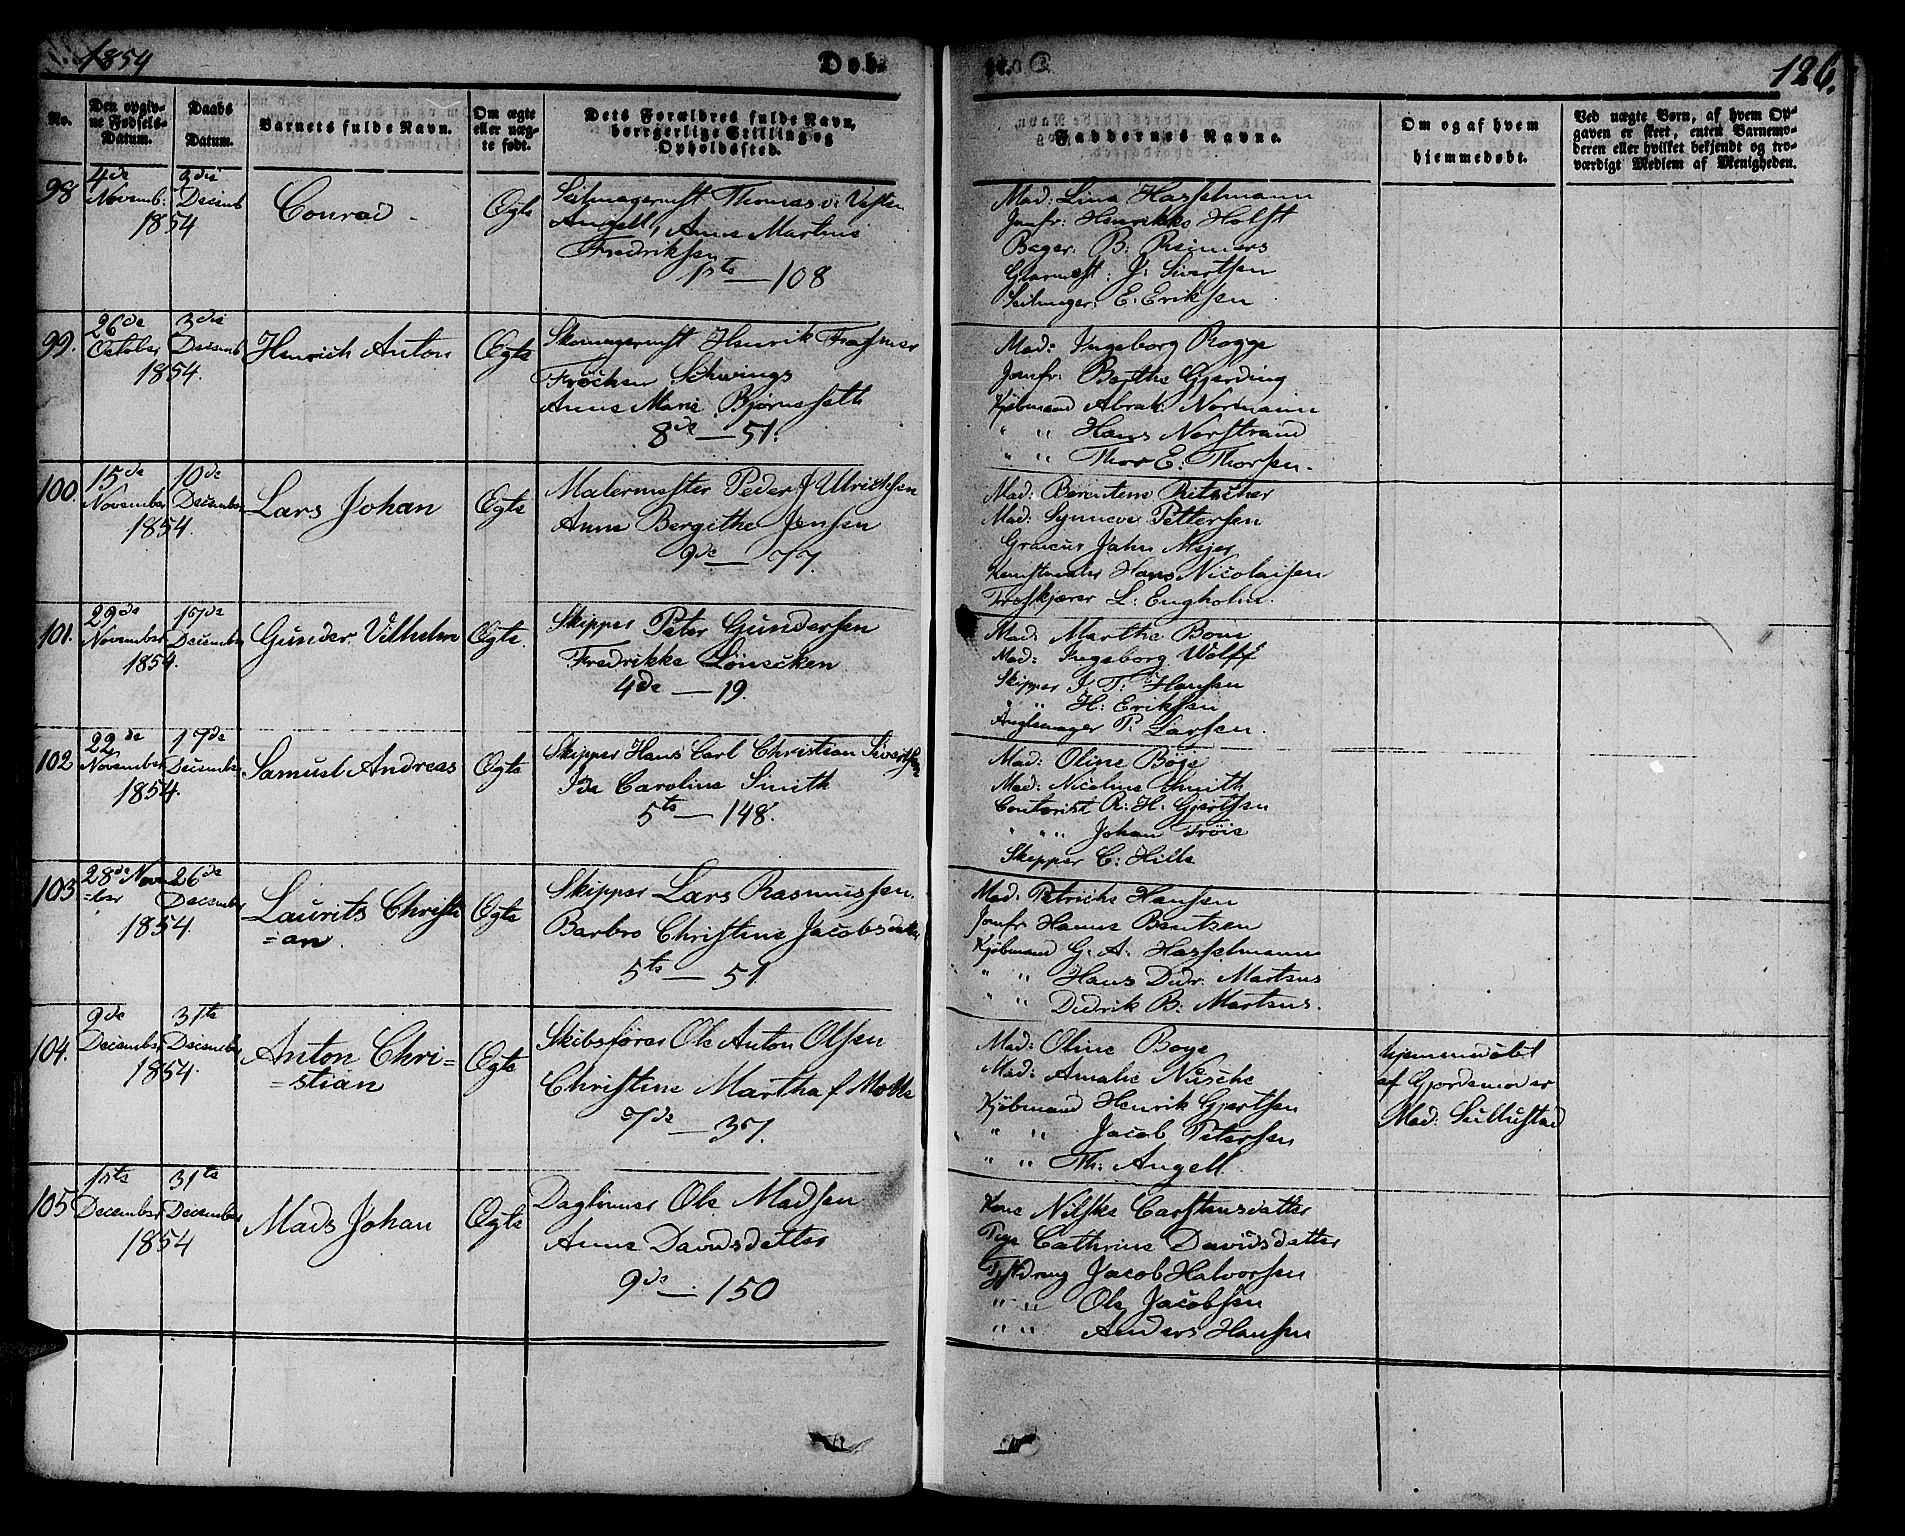 1854
Døb-
te.
126.
No.
Den opgiv-
ne Fødsels-
Datum.
Daabs
Datum.
Barnets fulde Navn.
Om ægte
eller uæg-
te født.
Dets Forældres fulde Navn,
borgerlige Stilling og
Opholdssted.
Faddernes Navne.
Om og af hvem
hjemmedøbt.
Ved uægte Børn, af hvem Op-
gaven er skeet, enten Barnemo-
deren eller hvilket bekjendt og tro-
værdigt Medlem af Menigheden.
98
4de
Novemb:
1854
3die
Decemb
Conrad
Ægte
Seilmagermst Thomas v: Westen
Angell, Anne Martine
Fredriksen
1ste — 108
Mad: Lina Hasselmann
Jomfr: Henrikke Holst
Bager: B. Reimers
Glarmest: J: Sivertsen
Seilmager: E: Eriksen
99.
26de
October
1854.
3die
Decemb
Henrich Anton
Ægte
Skomagermst Henrik
Schwings
Anne Marie Bjørnseth
8de — 51.
Mad: Ingeborg Rogge
Jomfr: Berthe Gjerding
Kjøbmand Abrah: Normann
" " Hans Norstrand
" " Thor E: Thorsen.
100.
15de
November
1854.
10de
December
Lars Johan
Ægte
Malermester Peder J Ulrichsen
Anne Bergithe Jensen
9de — 77.
Mad: Berentine Ritscher
Mad: Synneve Pettersen
Jahn Mejer
Hans Nicolaisen
L: Engholm.
101.
29de
November
1854.
17de
December
Gunder Vilhelm
Ægte.
Skipper Peter Gundersen
Fredrikke Lønecken
4de — 19.
Mad: Marthe Bom
Mad: Ingeborg Wolff
Skipper J T: Hansen
" " H: Eriksen
P: Larsen.
102
22de
November
1854.
17de
December
Samuel Andreas
Ægte
Skipper Hans Carl Christian Sivertsen
Ida Caroline Smith
5te — 148.
Mad: Oline Böge
Mad: Nicoline Smith
Contorist R: H: Gjertsen
" " Johan Tröie
Skipper C: Hille
103
28de Novem
=ber
1854.
26de
December
Laurits Christi
=an.
Ægte
Skipper Lars Rasmussen.
Barbro Christine Jacobsdatter
5te — 51
Mad: Petriche Hansen
Jomfr Hanne Bentsen
Kjøbmand G: A: Hasselmann
" " Hans Didr. Martens
" " Didrik B: Martens.
104.
9de
December
1854.
31te
December
Anton Chri-
=stian
Ægte
Skibsfører Ole Anton Olsen
Christine Martha f Molle
7de — 37.
Mad: Oline Boge
Mad: Amalie Nüsche
Kjøbmand Henrik Gjertsen
" " Jacob Petersen
" " Th: Angell
hjemmedøbt
af Gjordemoder
Mad: Sellustad
105
1ste
December
1854
31te
December
Mads Johan
Ægte
Daglønner Ole Madsen
Anne Davidsdatter
9de — 150
Kone Nilske Carstensdatter
Pige Cathrine Davidsdatter
Jacob Halvorsen
" " Ole Jacobsen
" " Anders Hansen